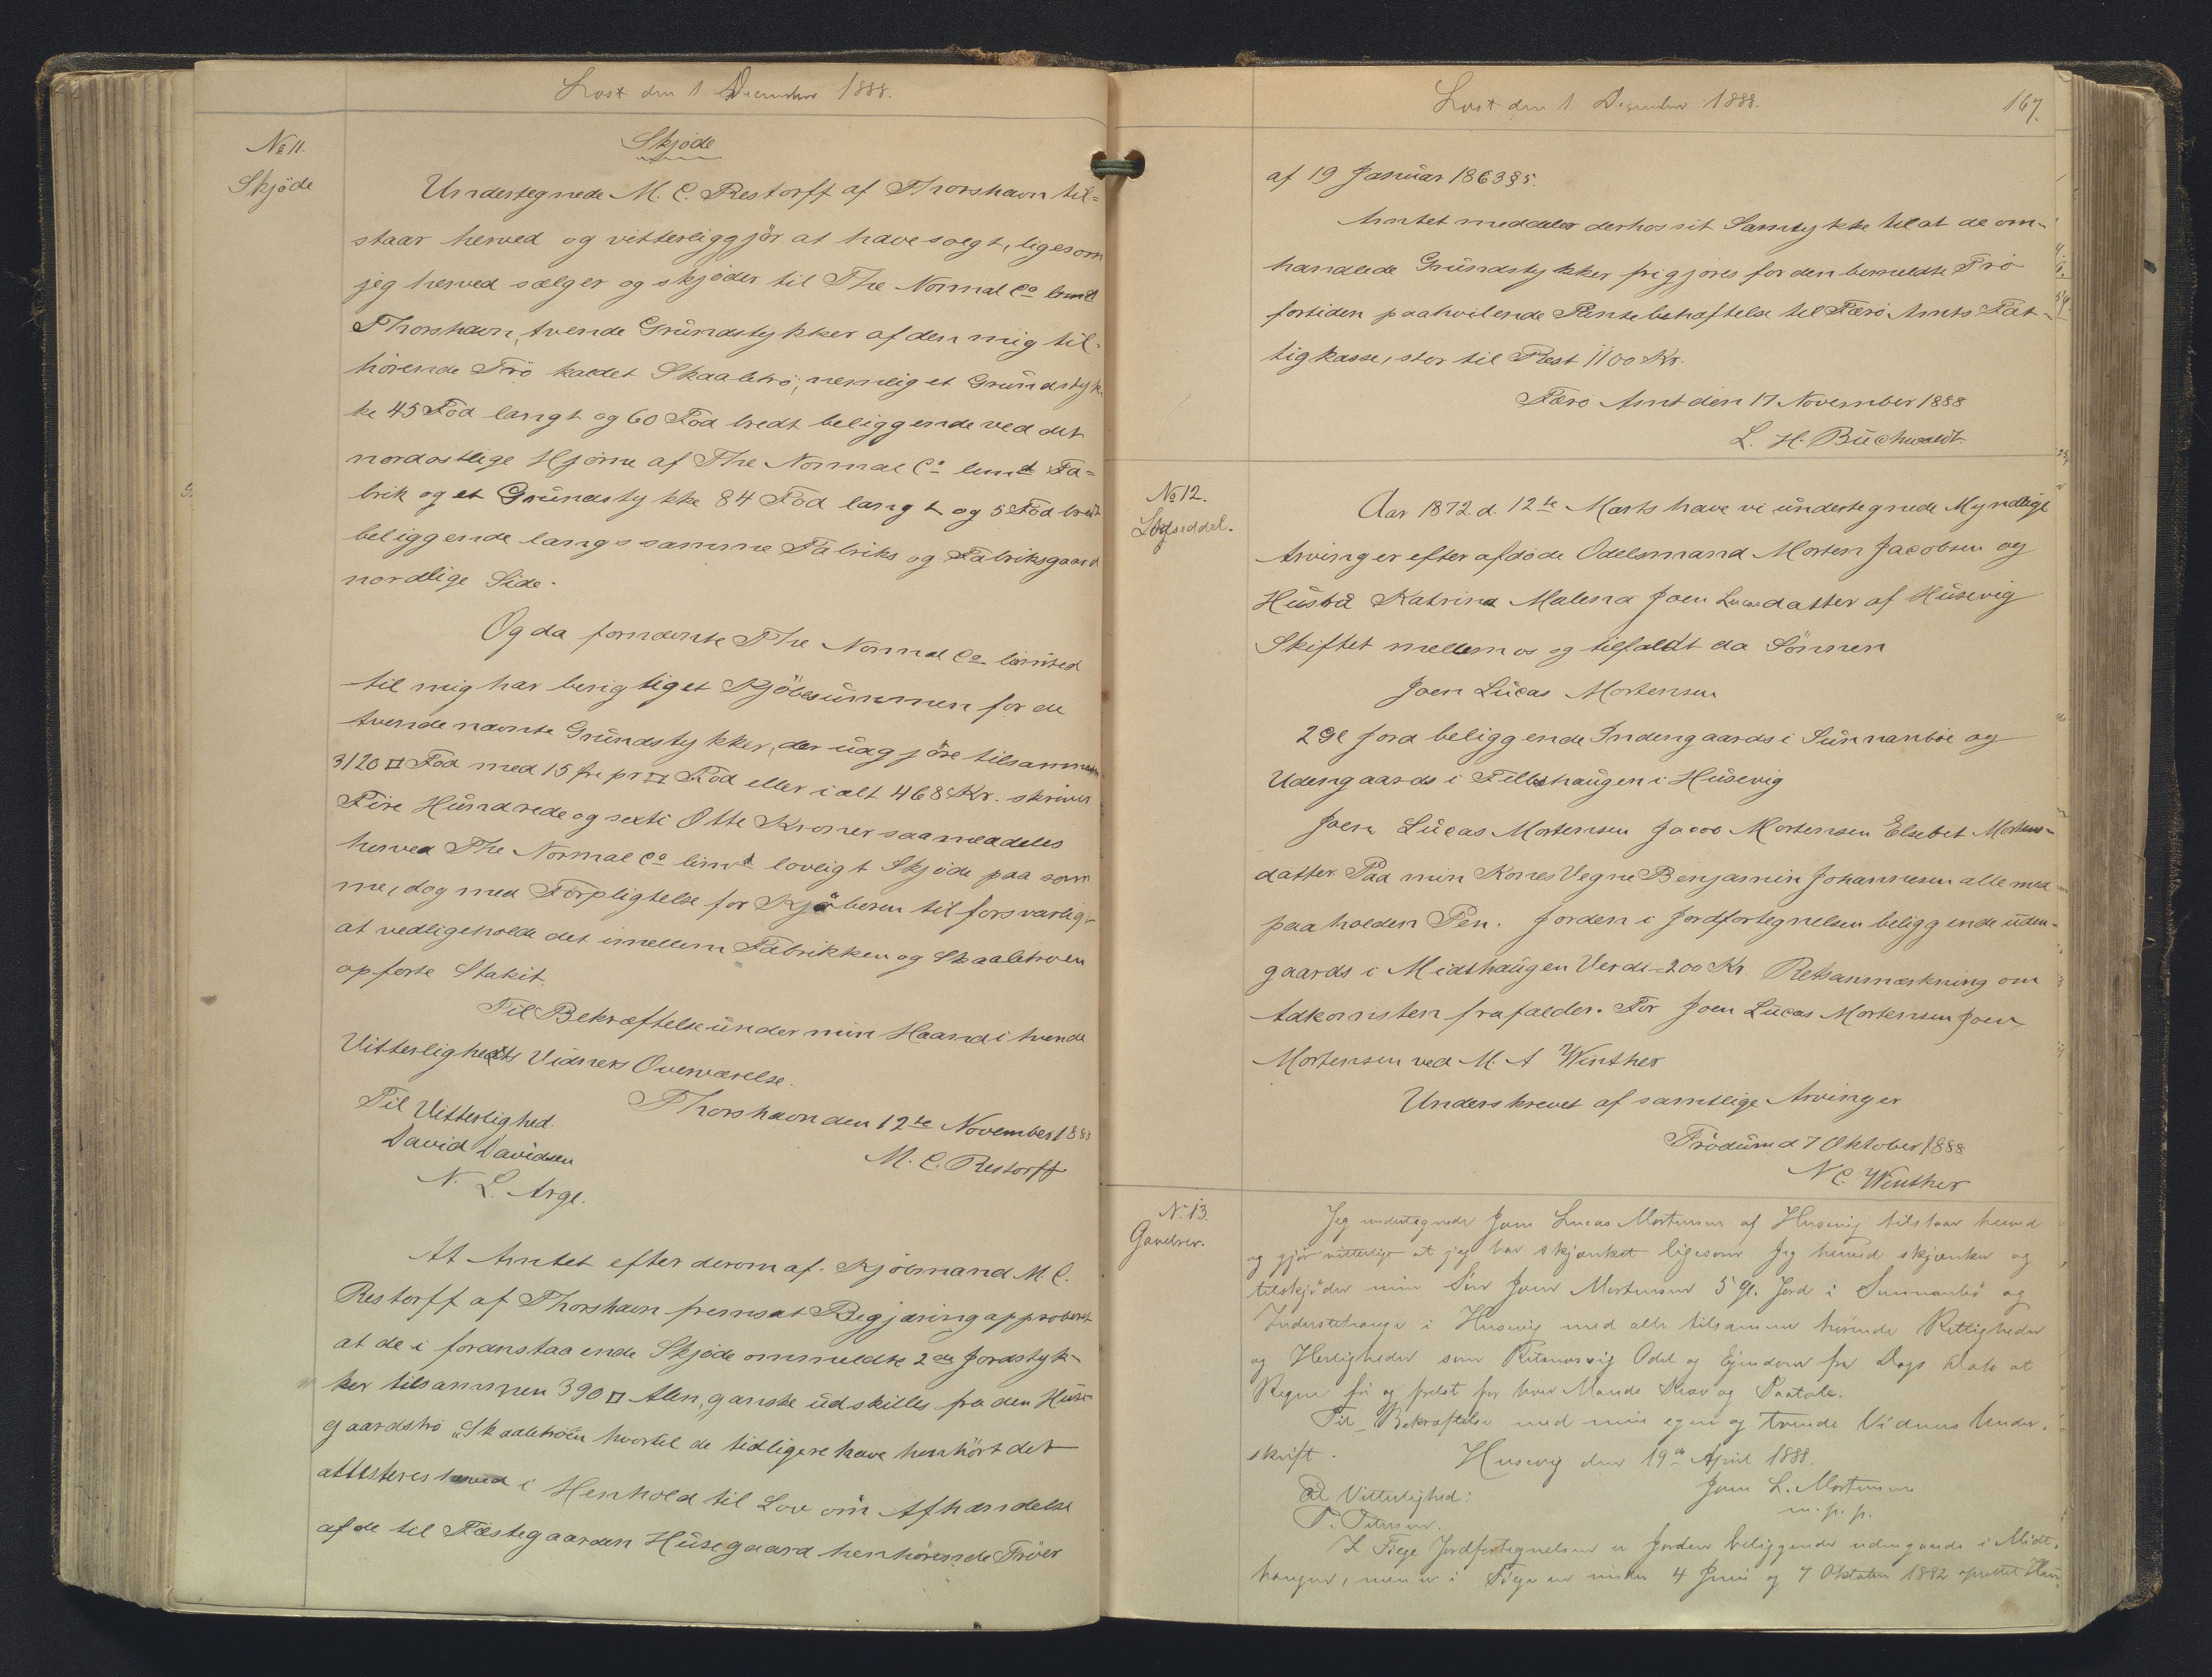 Læst den 1 December 1888.
No 11.
Skjöde
Skjøde
Undertegnede M. C. Restorff af Thorshavn til=
staar herved og vitterliggjör at have solgt, ligesom
jeg herved sælger og skjöder til The Normal Co limtd
Thorshavn, tvende Grundstykker af den mig til-
hörende Trö kaldet Skaaletrö; nemlig et Grundstyk-
ke 45 Fod langt og 60 Fod bredt beliggende ved det
nordostlige Hjörne af The Normal Co limtd Fa=
brik og et Grundstykke 84 Fod langt og 5 Fod bredt
beliggende langs samme Fabriks og Fabriksgaard
nordlige Side.
Og da fornævnte The Normal Co limited
til mig har berigtiget Kjöbesummen for de
tvende nævnte Grundstykker, der udgjöre tilsammen
3120 □ Fod med 15 Øre pr □ Fod eller ialt 468 Kr. skriver
Fire Hundrede og sexti Otte Kroner saa meddeles
herved The Normal Co limtd lovligt Skjöde paa sam
me, dog med Forpligtelse for Kjöberen til forsvarligt
at vedligeholde det imellem Fabrikken og Skaaletroen
opførte Stakit.
Til Bekræftelse under min Haand i tvende
Vitterligheds Vidners Overværelse.
Thorshavn den 12te November 1888
Til Vitterlighed.
David Davidsen
M. C. Restorff
N. L. Arge.
At Amtet efter derom af Kjøbmand M. C.
Restorff af Thorshavn fremsat Begjæring approberet
at de i foranstaaende Skjøde ommeldte 2de Jordstyk-
ker tilsammen 390 □ Alen, ganske udskilles fra den Huse-
gaardstrø "Skaaletröen" hvortil de tidligere have henhört det
attesteres herved i Henhold til Lov om Afhændelse
af de til Fæstegaarden Husegaard henhörende Tröer
Læst den 1 December 1888.
167.
af 19 Januar 1863 § 5.
Amtet meddeler derhos sit Samtykke til at de om-
handlede Grundstykker frigjøres for den bemeldte Trö
fortiden paahvilende Pantebehæftelse til Færø Amts Fat-
tigkasse, stor til Rest 1100 Kr.
Færø Amt den 17 November 1888
L. H. Buchwaldt
No 12.
Logseddel.
Aar 1872. d. 12te Marts have vi undertegnede Myndige
Arvinger efter afdøde Odelsmand Morten Jacobsen og
Hustru Katrina Malena Joen Lucasdatter af Husevig
Skiftet mellem os og tilfaldt da Sönnen
Joen Lucas Mortensen
2 Gl Jord beliggende Indengaards i Sunnanböe og
Udengaards i Fillishaugen i Husevig
Joen Lucas Mortensen Jacob Mortensen Elsebet Mortens-
datter Paa min Kones Vegne Benjamin Johannesen alle med
paaholden Pen. Jorden i Jordfortegnelsen beliggende uden-
gaards i Midthaugen Verdi 200 Kr Retsanmærkning om
Adkomsten frafalder. For Joen Lucas Mortensen Joen
Mortensen ved M. A Winther
Underskrevet af samtlige Arvinger
Trödum d 7 Oktober 1888
N C. Winther
No 13.
Gavebrev.
Jeg undertegnede Joen Lucas Mortensen af Husevig tilstaar herved
og gjør vitterligt at jeg har skjænket ligesom Jeg herved skjænker og
tilskjöder min Sön Joen Mortensen 5 Gl. Jord i Sunnanbö og
i Husevig med alle tilsammen hörende Rettigheder
og Herligheder som Odel og Ejendom fra Dags Dato at
Regne fri og frelst for hver Mands Krav og Paatale.
Til Bekræftelse med min egen og tvende Vidners Under.
skrift.
Husevig den 19de April 1888.
Til Vitterlighed:
Joen L. Mortensen
m. p. p.
P. Petersen.
I Jordfortegnelsen er Jorden beliggende udengaards i Midt-
haugen, men er i under 4 Juni og 7 Oktober 1882